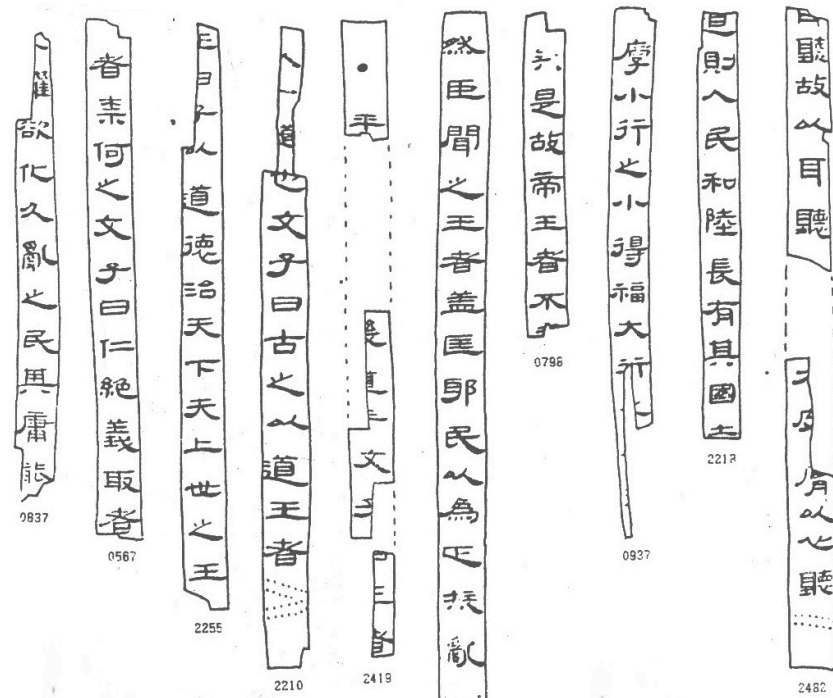 聽故以耳聽 皮膚以心聽
2482
則人民和陸長有其國土
2218
小行之小得福大行
0937
矣是故帝王者不
0798
然臣聞之王者盖匡邪民以為正振亂
• 平王文子曰王者
2419
一道也文子曰古之以道王者
2210
王曰子以道德治天下天上世之王
2255
者柰何之文子曰仁絕義取者
0567
欲化久亂之民其庸能
0837